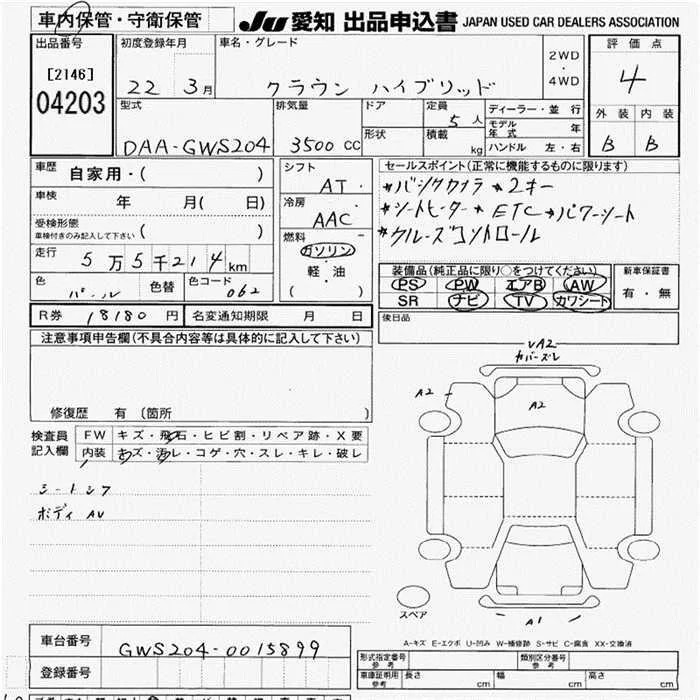 車内保管・守衛保管
JU 愛知 出品申込書 JAPAN USED CAR DEALERS ASSOCIATION
出品番号
[2146]
04203
初度登録年月
22 3月
車名・グレード
クラウン ハイブリッド
2WD
・
4WD
評価点
4
外装 内装
B B
型式
DAA-GWS204
排気量
3500 CC
ドア
形状
定員
5人
積載
kg
ディーラー・並行
モデル年式 年
ハンドル 左・右
車歴
自家用・( )
車検
年 月( 日)
受検形態
車検付きのみ記入して下さい ( )
走行
5万5千214km
色
パール
色替
色コード
062
シフト
AT
冷房
AAC
燃料
ガソリン
・
軽・油
( )
セールスポイント(正常に機能するものに限ります)
*バックカメラ *2キー
*シートヒーター *ETC *パワーシート
*クルーズコントロール
装備品(純正品に限り○をつけてください)
PS PW エアB AW
SR ナビ TV カワシート
新車保証書
有・無
R券 18180円
名変通知期限 月 日
後日品
注意事項申告欄(不具合内容等は具体的に記入して下さい)
修復歴 有 (箇所 )
検査員
記入欄
FW キズ・飛石・ヒビ割・リペア跡・X要
内装 キズ・汚レ・コゲ・穴・スレ・キレ・破レ
シートシワ
ボディ AU
VA2
カバーズレ
A2
A2
A1
cm cm
cm cm
スペア
A-キズ E-エクボ U-凹み W-補修跡 S-サビ C-腐食 XX-交換済
車台番号
GWS204-0015899
登録番号
形式指定番号
参考
類別区分番号
参考
車庫証明用
参考
長さ cm 幅 cm 高さ cm